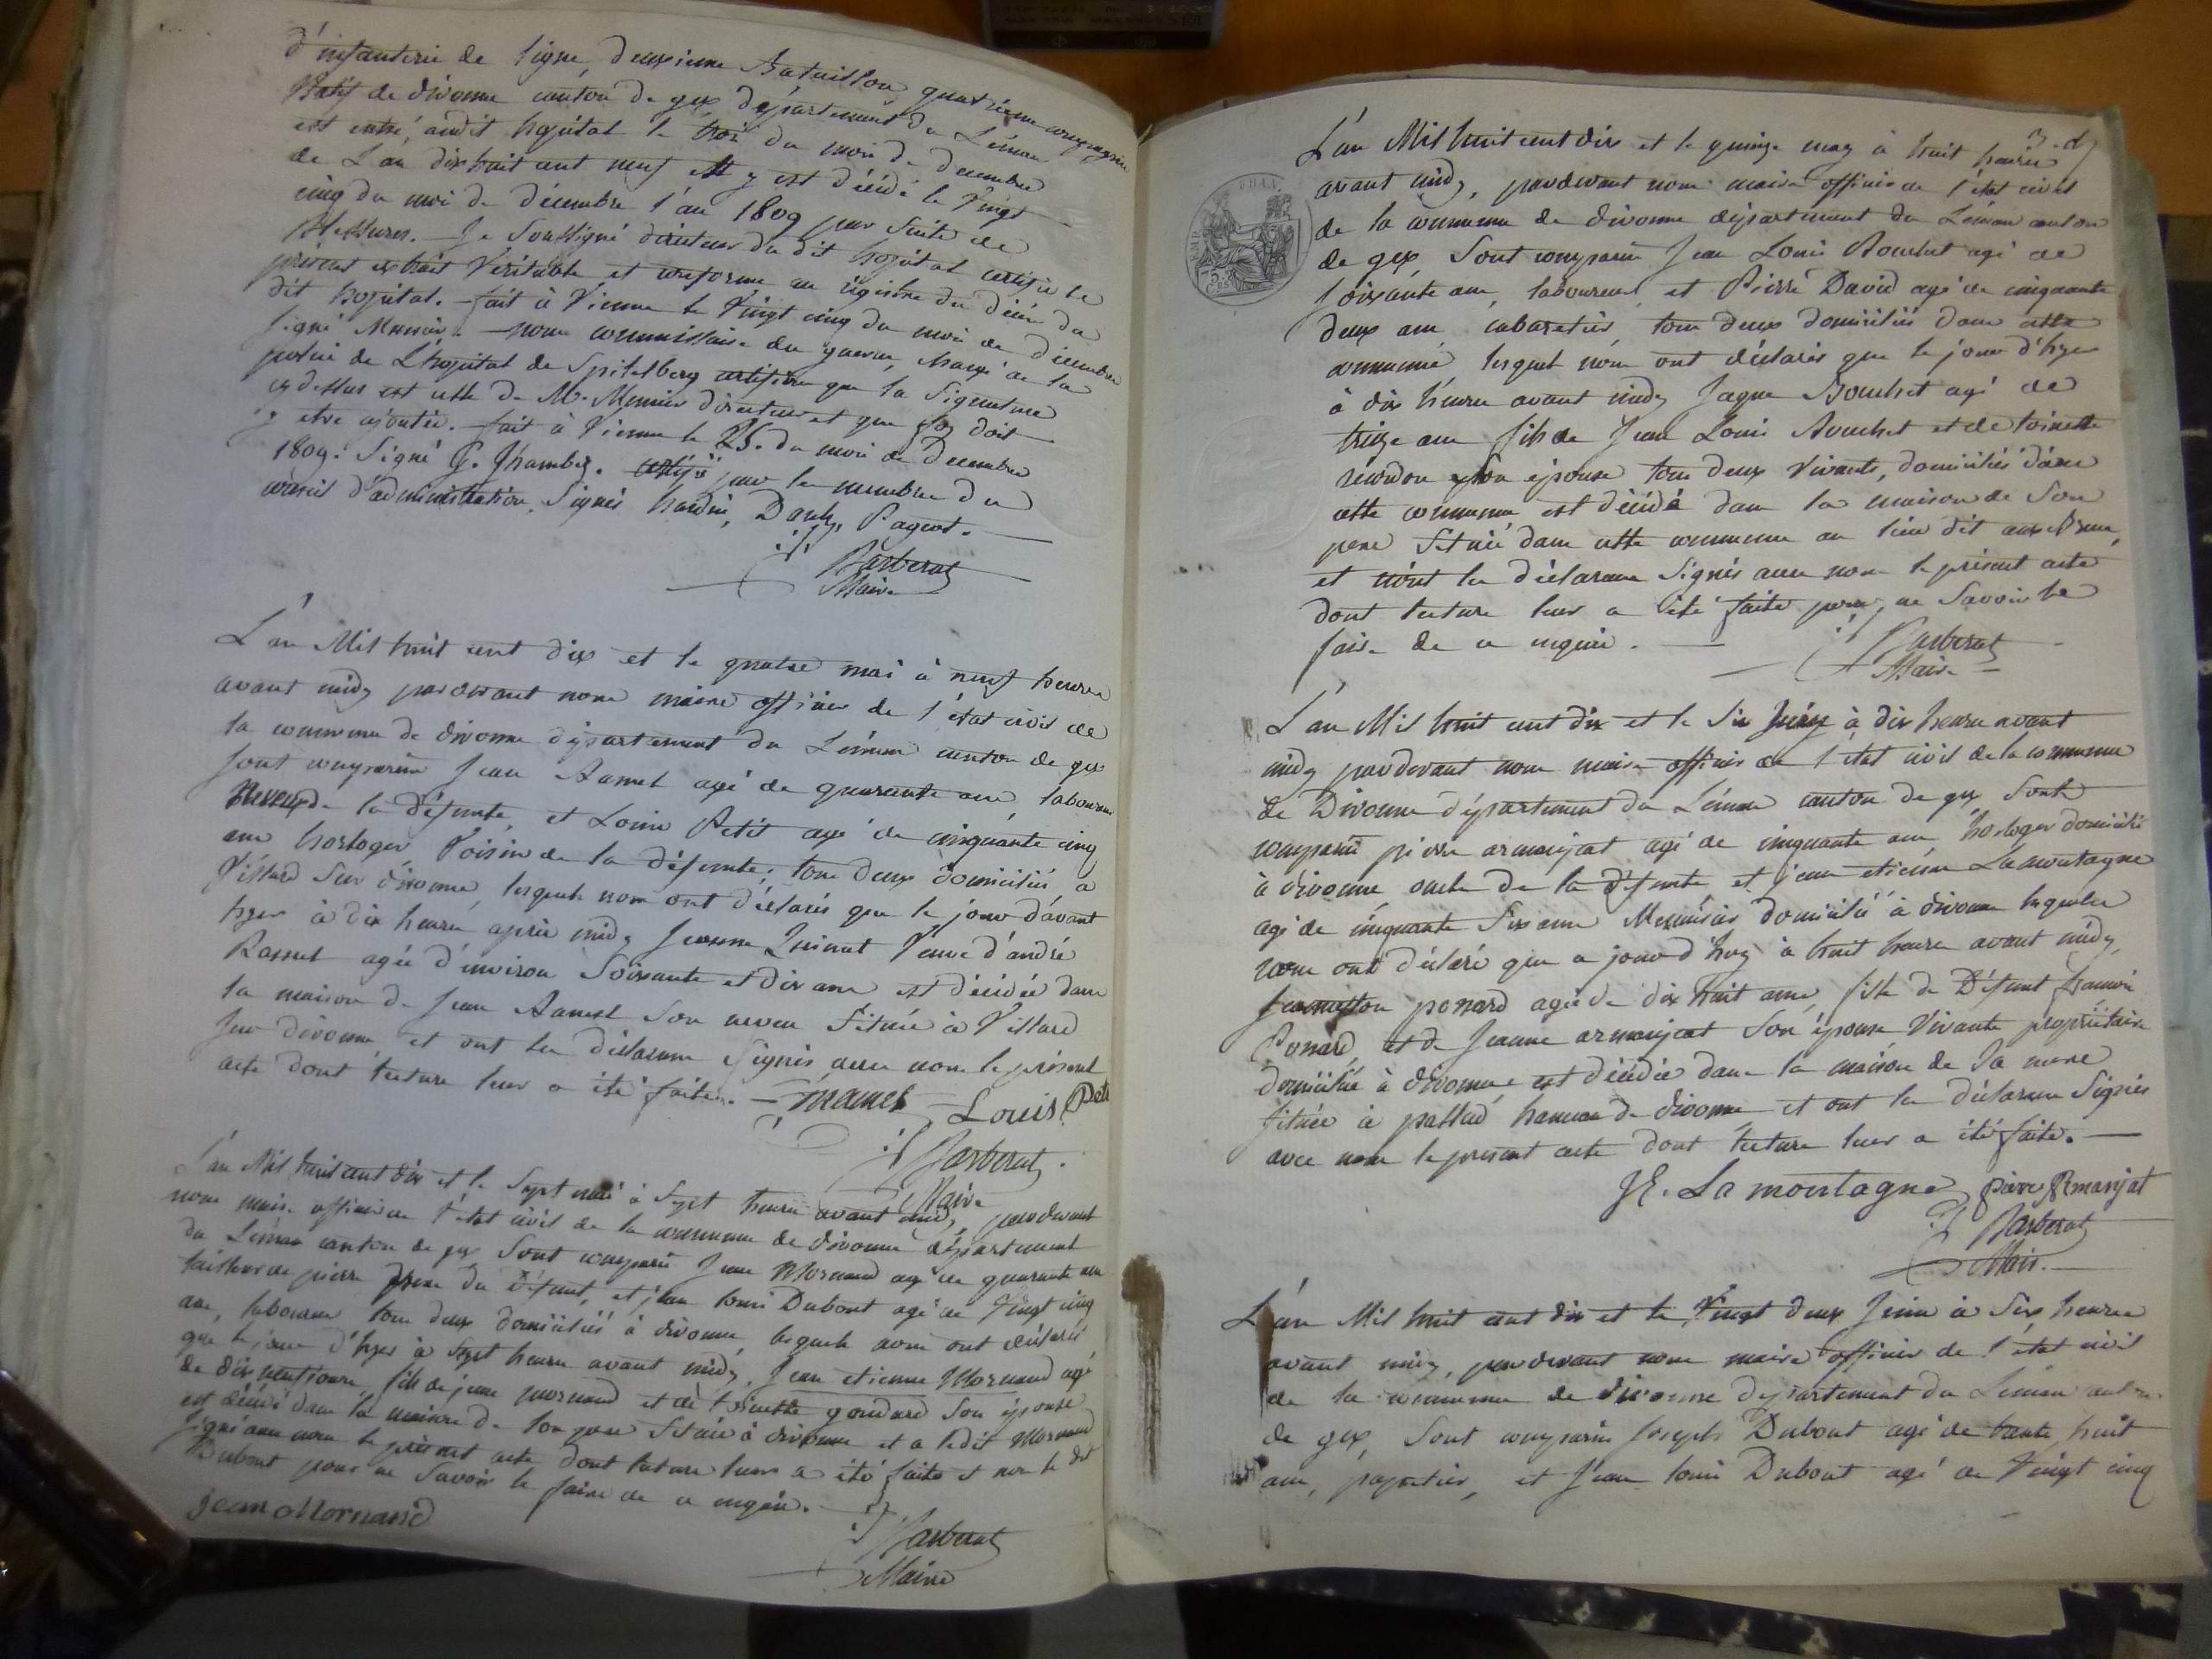 d'infanterie de ligne, deuxieme Bataillon quatrieme compagnie
Natif de divonne canton de gex département du Léman
est entré audit hopital le trois du mois de decembre
de L'an dixhuit cent neuf et y est décédé le Vingt
cinq du mois de décembre l'an 1809 par suite de
Blessures. — Je Soussigné directeur du dit hopital certifie le
présent extrait Véritable et conforme au régistre du décés du
dit hopital. — fait à Vienne le Vingt cinq du mois de décembre
signé Munier — nous commissaire des guerres, chargé de la
police de L'hopital de Spitelberg certifions que la Signature
cy dessus est celle de Mr. Munier directeur et que foy doit
y etre ajoutée. — fait à Vienne le 25. du mois de decembre
1809. Signé certifié par les membres du
conseil d'administration, Signés hardis, Pageot. —
Barberat
Maire
L'an Mil huit cent dix et le quatre mai à neuf heures
avant midy pardevant nous maire officier de l'état civil de
la commune de divonne département du Léman canton de gex
sont comparus Jean Ramel agé de quarante ans laboureur
Neveu de la défunte, et Louis Petit agé de cinquante cinq
ans horloger Voisin de la défunte, tous deux domiciliés a
Villard Sur divonne, lesquels nous ont déclarés que le jour d'avant
hyer à dix heures après midy Jeanne Quinat Veuve d'andré
Ramel agée d'environ Soixante et dix ans est décédée dans
la maison de Jean Ramel Son neveu Située à Villard
Sur divonne et ont les déclarans Signés avec nous le présent
acte dont lecture leur a été faite. — J Ramel Louis Petit
Barberat
Maire
L'an Mil huit cent dix et le Sept mai à Sept heures avant midy, pardevant
nous maire officier de l'état civil de la commune de divonne département
du Léman canton de gex Sont comparus Jean Mornand agé de quarante ans
tailleur de pierre père du défunt, et jean louis Dubout agé de Vingt cinq
ans, laboureur tous deux domiciliés à divonne, lesquels nous ont déclarés
que le jour d'hyer à Sept heures avant midy, Jean etienne Mornand agé
de dix neuf jours fils de jean mornand et de toinette goudard Son épouse
est décédé dans la maison de Son père Située à divonne et a ledit Mornand
Signé avec nous le présent acte dont lecture leur a été faite et non le dit
Dubout pour ne Savoir le faire de ce enquis. —
Jean Mornand
Barberat
Maire
L'an Mil huit cent dix et le quinze may à huit heures
avant midy, pardevant nous maire officier de l'état civil
de la commune de divonne département du Léman canton
de gex Sont comparus Jean Louis Bouchet agé de
soixante ans, laboureur, et Pierre David agé de cinquante
deux ans cabaretier, tous deux domiciliés dans cette
commune lesquels nous ont déclarés que le jour d'hyer
à dix heures avant midy Jaque Bouchet agé de
treize ans fils de Jean Louis Bouchet et de toinette
récordon son épouse tous deux Vivants, domiciliés dans
cette commune est décédé dans la maison de Son
pere Située dans cette commune au lieu dit
et n'ont les déclarans Signés avec nous le présent acte
dont lecture leur a été faite pour ne Savoir le
faire de ce enquis. —
Barberat
Maire
L'an Mil huit cent dix et le Six Juin à dix heures avant
midy pardevant nous maire officier de l'état civil de la commune
de Divonne département du Léman canton de gex Sont
comparus pierre armanjat agé de cinquante ans, horloger domicilié
à divonne oncle de la défunte et jean etienne Lamontagne
agé de cinquante Six ans Menuisier domicilié à divonne lesquels
nous ont déclaré que ce jour d'huy à huit heures avant midy,
Jeanneton ponard agée de dix huit ans, fille de Défunt françois
Ponard et de Jeanne armanjat Son épouse Vivante propriétaire
domiciliée à divonne est décédée dans la maison de Sa mere
située à hameau de divonne et ont les déclarans Signés
avec nous le présent acte dont lecture leur a été faite. —
JE. La montagne pierre Armanjat
Barberat
Maire
L'an Mil huit cent dix et le Vingt deux Juin à Six heures
avant midy, pardevant nous maire officier de l'état civil
de la commune de divonne département du Léman canton
de gex, Sont comparus Joseph Dubout agé de trente huit
ans, papetier, et Jean louis Dubout agé de Vingt cinq